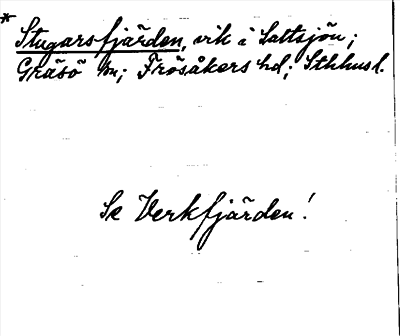 * Stugarsfjärden, vik i Saltsjön;
Gräsö sn; Frösåkers hd; Sthhusl.
Se Verkfjärden!